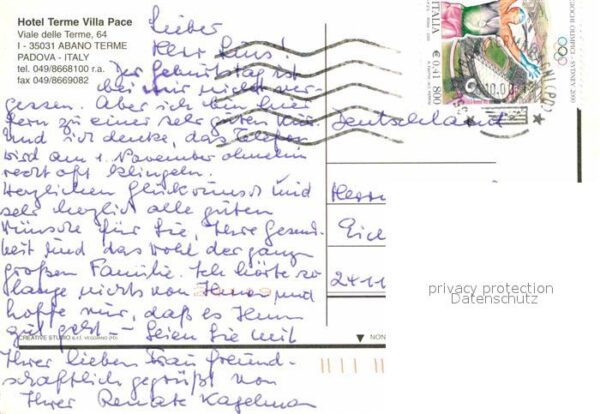 Hotel Terme Villa Pace
Viale delle Terme, 64
I - 35031 ABANO TERME
PADOVA - ITALY
tel. 049/8668100 r.a.
fax 049/8669082
Lieber
Herr
Der Geburtstag ist
bei mir nicht ver-
gessen. Aber ich bin hier
zu einer sehr guten Kur.
Und ich denke, das Telefon
wird am 1. November ohnehin
recht oft klingeln.
Herzlichen Glückwunsch und
sehr herzlich alle guten
Wünsche für Sie, Ihre Gesund-
heit und das Wohl der ganz
großen Familie. Ich hörte so
lange nichts von Ihnen und
hoffe nur, daß es Ihnen
gut geht. – Seien Sie mit
Ihrer lieben Frau freund-
schaftlich gegrüßt von
Ihrer Renate Kagelman
ITALIA
€ 0,41
800
GIOCHI OLIMPICI - SYDNEY 2000
Deutschland
Herrn
Eich
24-11
privacy protection
Datenschutz
CREATIVE STUDIO
NON